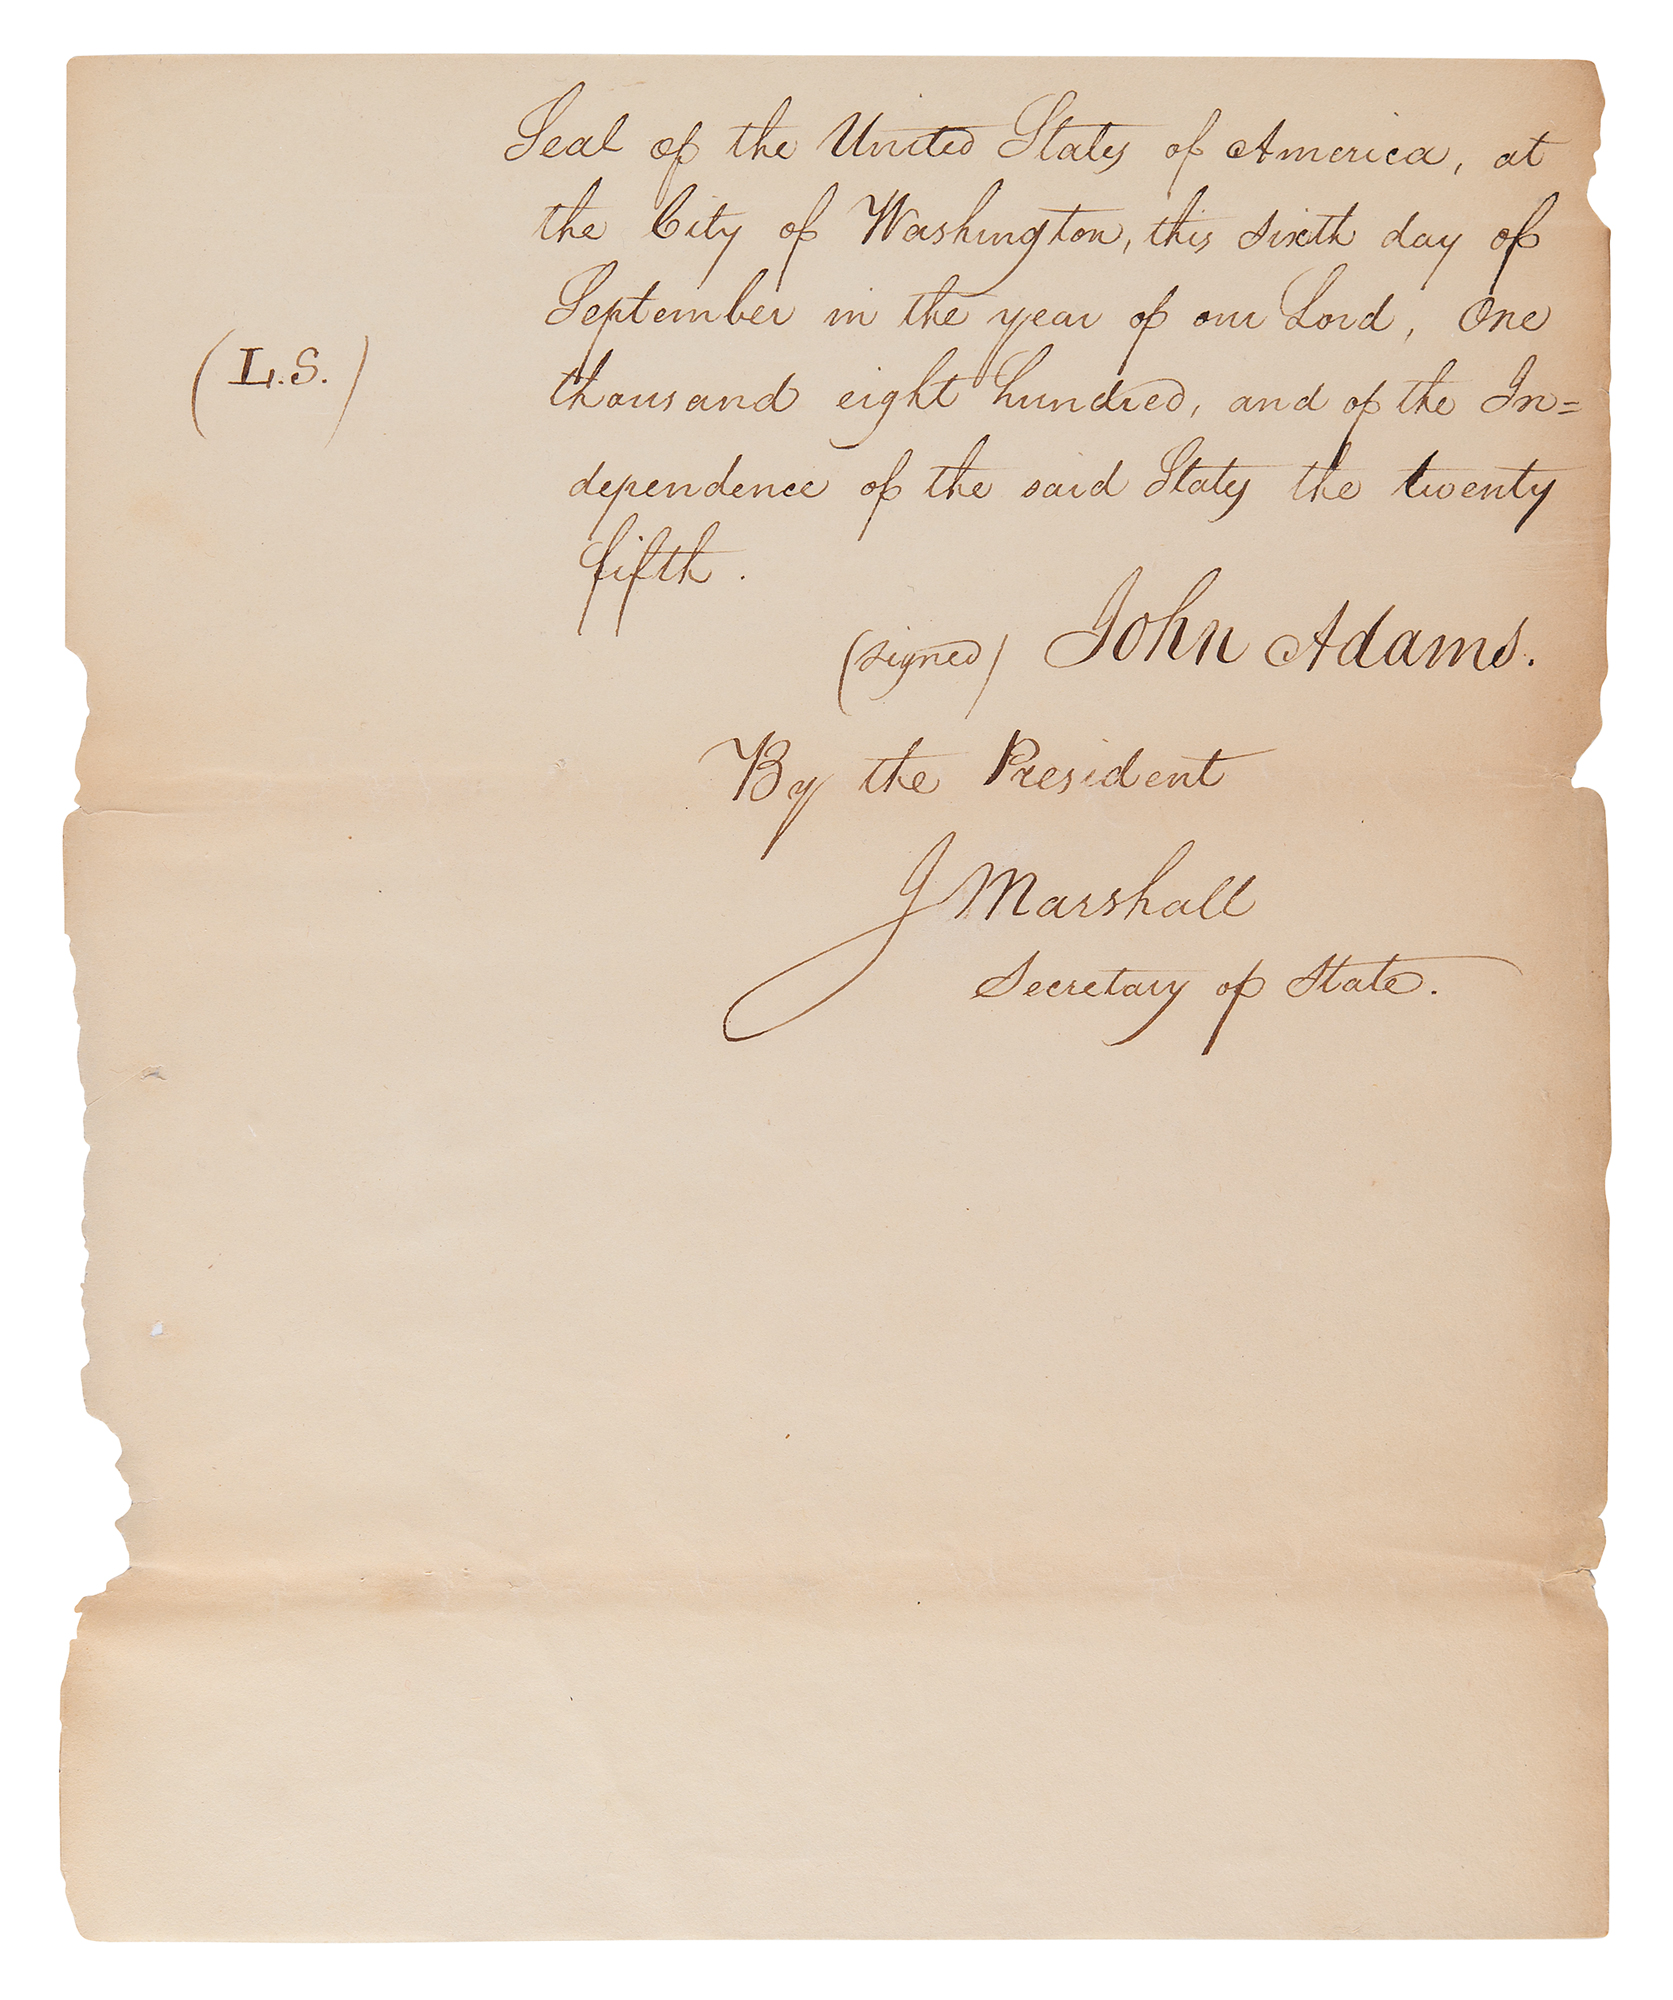 Seal of the United States of America, at
the City of Washington, this sixth day of
September in the year of our Lord, One
(L.S.)
thousand eight hundred, and of the In=
dependence of the said States the twenty
fifth.
(signed) John Adams.
By the President
J Marshall
Secretary of State.